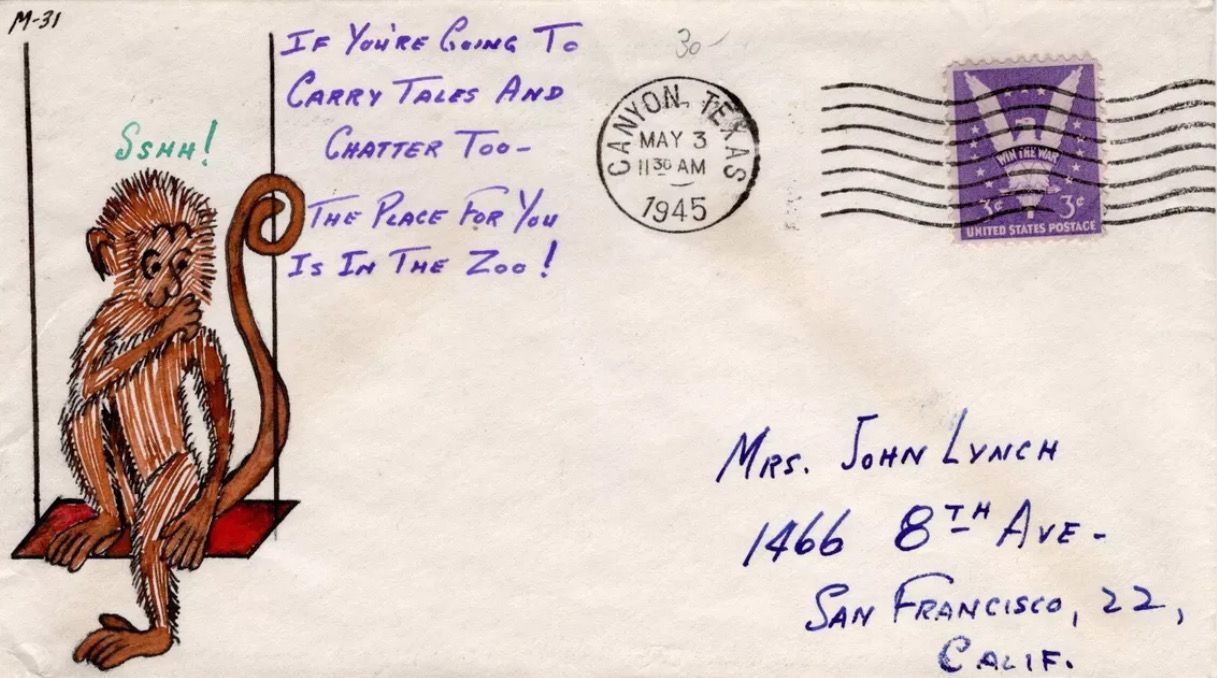 M-31
IF YOU'RE GOING TO
CARRY TALES AND
CHATTER TOO-
THE PLACE FOR YOU
IS IN THE ZOO!
SSHH!
30-
CANYON, TEXAS
MAY 3
11 30 AM
1945
WIN THE WAR
3¢ 3¢
UNITED STATES POSTAGE
MRS. JOHN LYNCH
1466 8TH AVE-
SAN FRANCISCO, 22,
CALIF.